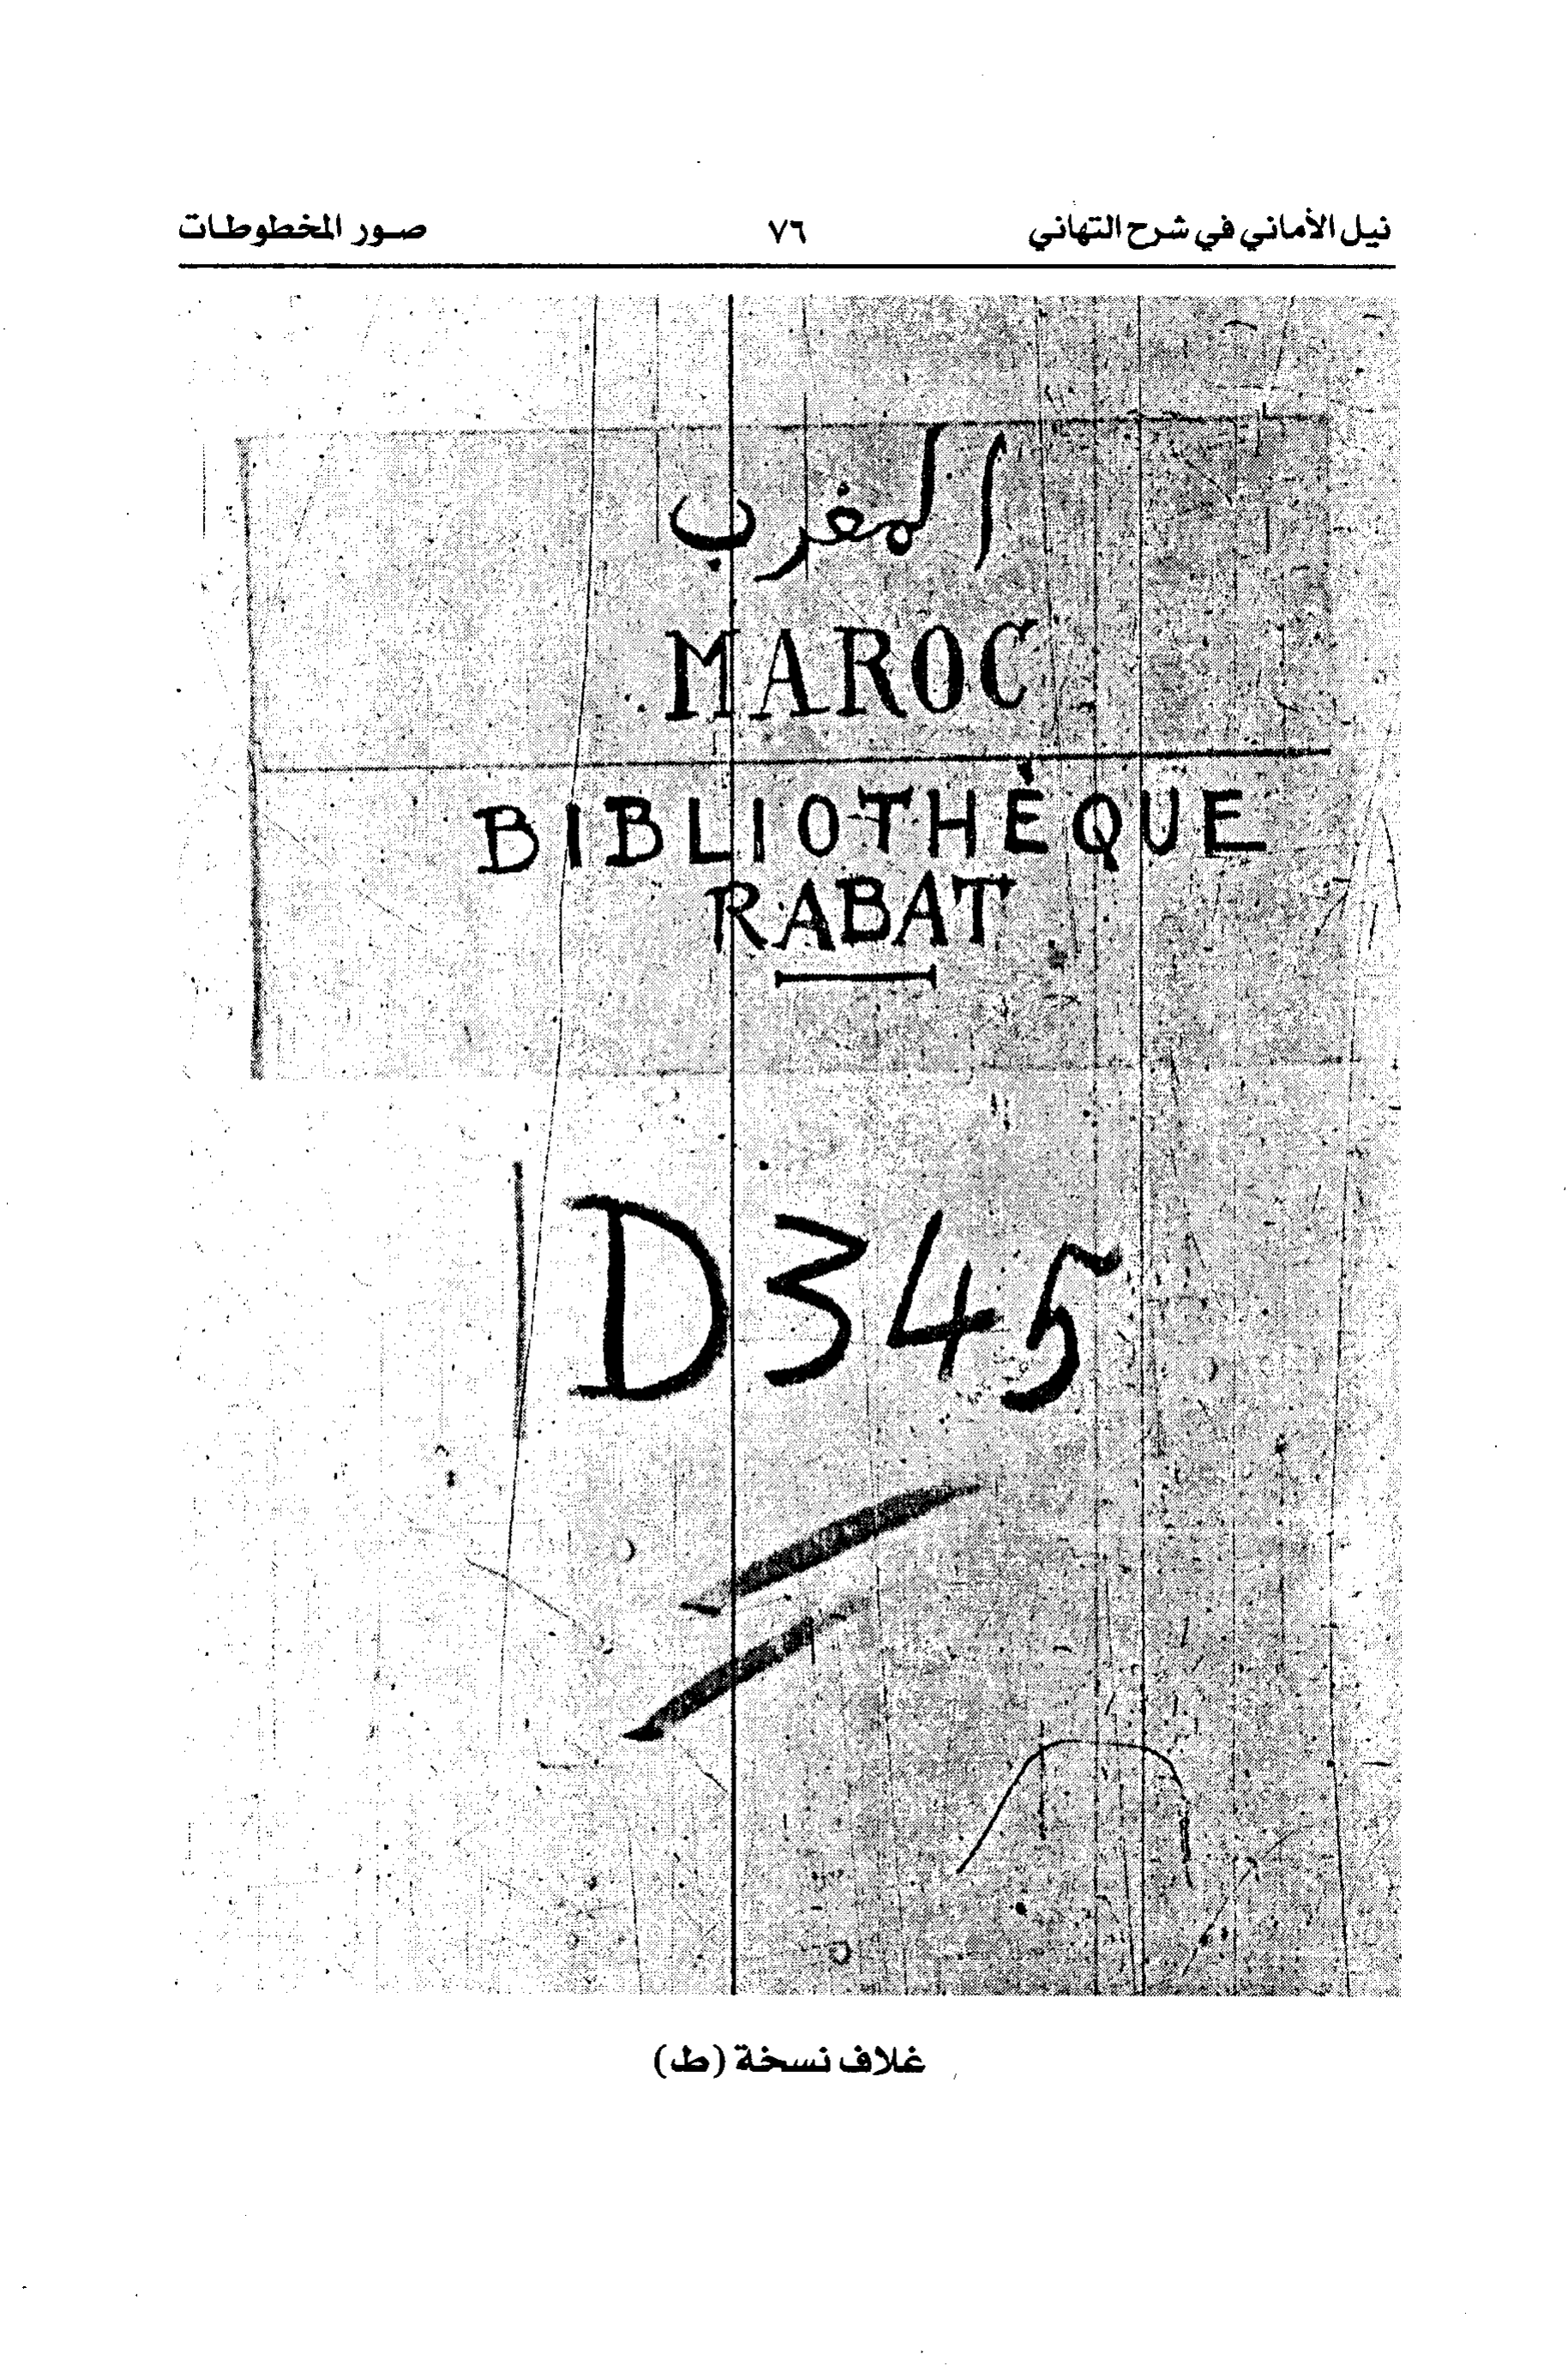 نيل الأماني في شرح التهاني ٧٦ صور المخطوطات
المغرب
MAROC
BIBLIOTHÈQUE
RABAT
D345
غلاف نسخة (ط)